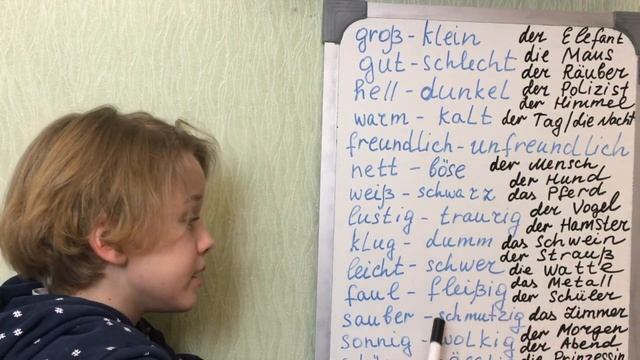 groß - klein der Elefant
die Maus
gut - schlecht der Räuber
hell - dunkel der Polizist
der Himmel
warm - kalt der Tag/die Nacht
freundlich - unfreundlich
nett - böse der Mensch
der Hund
weiß - schwarz das Pferd
lustig - traurig der Vogel
der Hamster
klug - dumm das Schwein
der Strauß
leicht - schwer die Watte
das Metall
faul - fleißig der Schüler
sauber - schmutzig das Zimmer
der Morgen
sonnig - wolkig der Abend
die Prinzessin